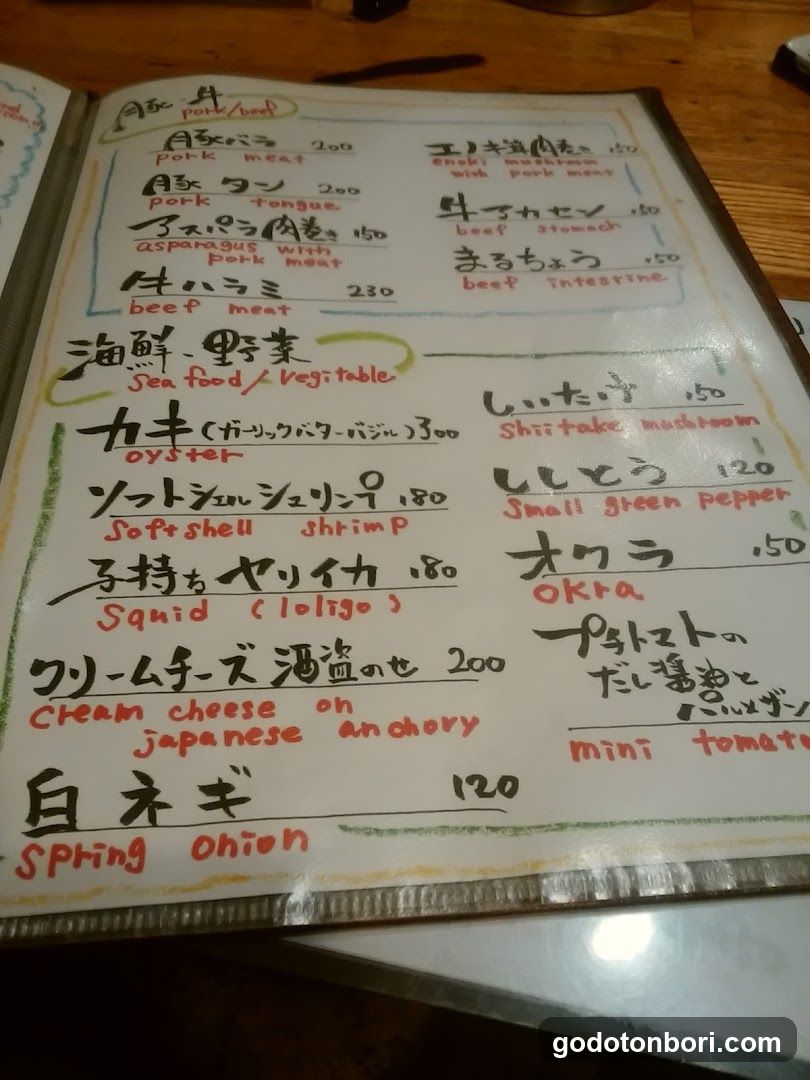 豚・牛
pork/beef
豚バラ 200
pork meat
豚タン 200
pork tongue
アスパラ肉巻き 150
asparagus with
pork meat
牛ハラミ 230
beef meat
エノキ茸肉巻き 150
enoki mushroom
with pork meat
牛アカセン 150
beef stomach
まるちょう 150
beef intestine
海鮮・野菜
Sea food/vegitable
カキ(ガーリックバターバジル)300
oyster
ソフトシェルシュリンプ 180
Soft shell shrimp
子持ちヤリイカ 180
Squid (loligo)
クリームチーズ酒盗のせ 200
Cream cheese on
japanese anchory
白ネギ 120
Spring onion
しいたけ 150
Shiitake mushroom
ししとう 120
Small green pepper
オクラ 150
okra
プチトマトの
だし醤油と
パルメザン
mini tomato
godotonbori.com